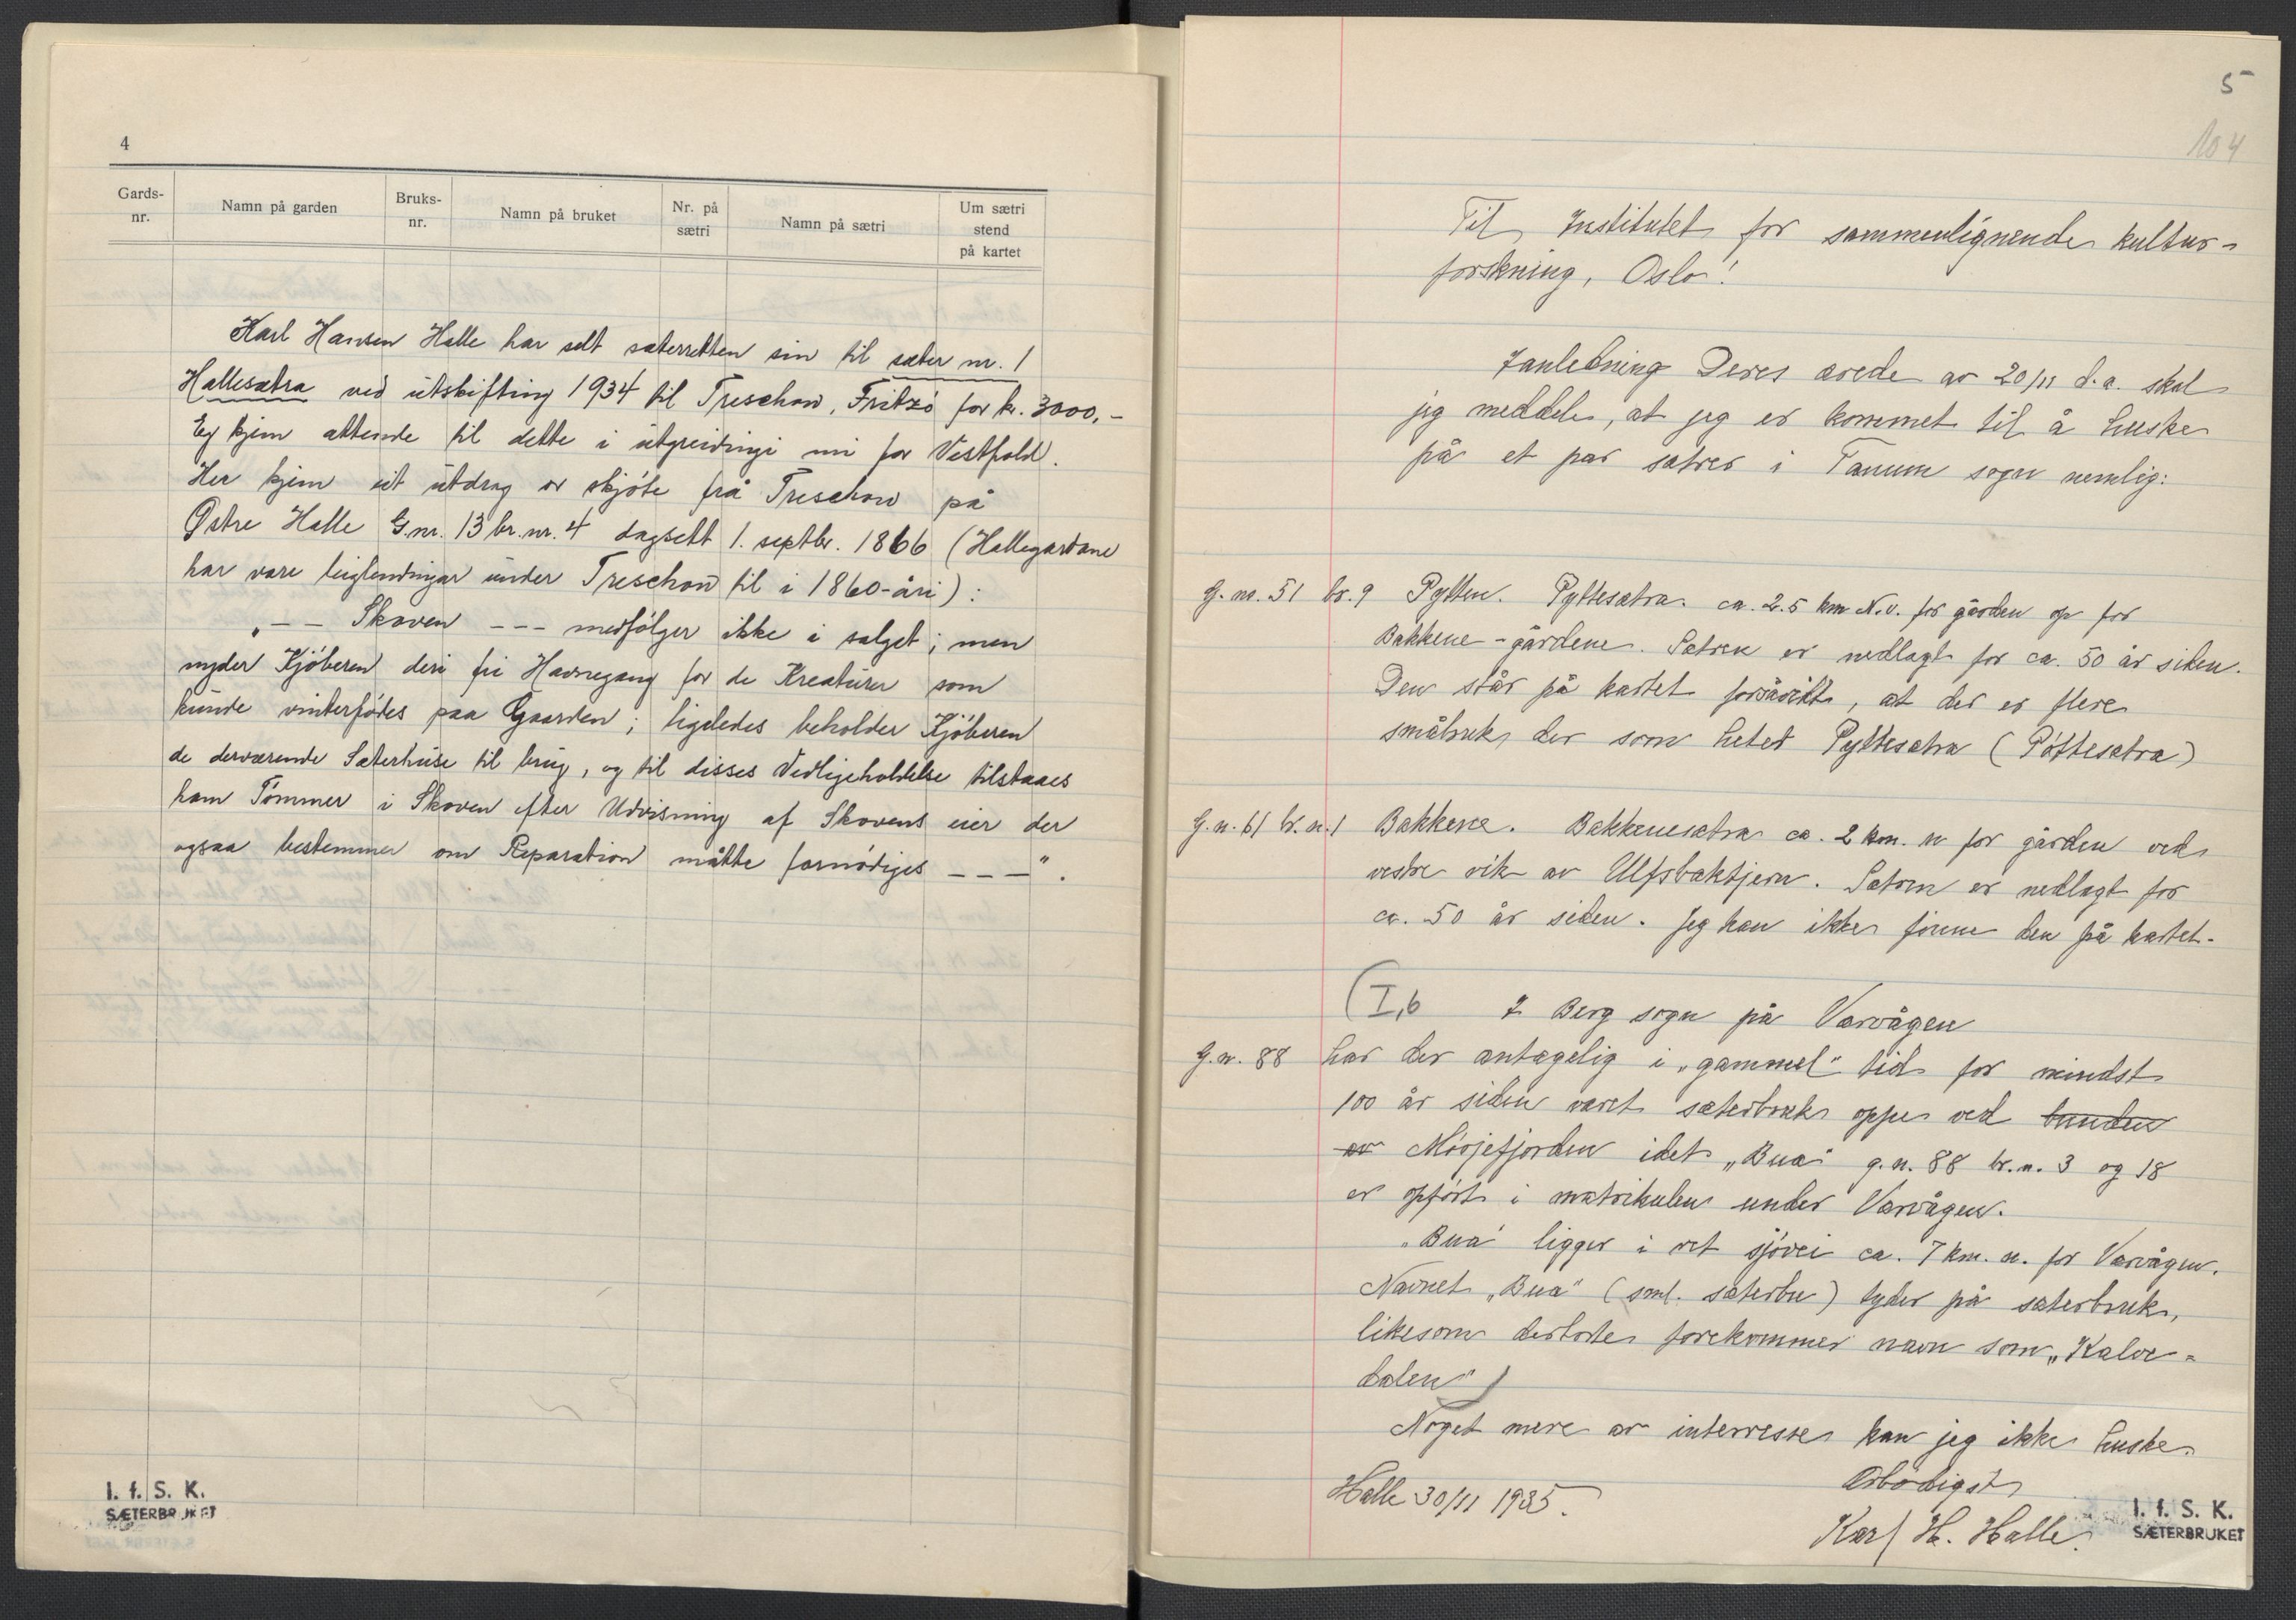 4
Gards-nr.
Namn på garden
Bruks-nr.
Namn på bruket
Nr. på sætri
Namn på sætri
Um sætri stend på kartet
Karl Hansen Halle har selt sæterretten sin til sæter nr. 1
Hallesætra ved utskifting 1934 til Treschow, Fritzö for kr. 3000,-
Eg kjem attende til dette i utgreidingi mi for Vestfold.
Her kjem eit utdrag or skjöte frå Treschow på
Østre Halle G.nr. 13 br.nr. 4 dagsett 1. septbr. 1866 (Hallegardane
har vore leiglendingar under Treschow til i 1860-åri):
„-- Skoven --- medfölger ikke i salget; men
nyder Kjöberen deri fri Havnegang for de Kreaturer som
kunde vinterfödes paa Gaarden; ligeledes beholder Kjöberen
de derværende Sæterhuse til brug, og til disses Vedligeholdelse tilstaaes
ham Tömmer i Skoven efter Udvisning af Skovens eier der
ogsaa bestemmer om Reparation måtte fornödiges ---".
I. f. S. K.
SÆTERBRUKET
5
104
Til Institutet for sammenlignende kultur-
forskning, Oslo!
I anledning Deres ærede av 20/11 d.a. skal
jeg meddele, at jeg er kommet til å huske
på et par sætrer i Tanum sogn nemlig:
G. nr. 51 br. 9 Pytten. Pyttesætra. ca. 2.5 km N.v. for gården op for
Bakkene-gårdene. Sætren er nedlagt for ca. 50 år siden.
Den står på kartet forsåvidt, at der er flere
småbruk der som heter Pyttesætra (Pöttesætra)
G.n. 61 br.n.1 Bakkene. Bakkenesætra ca. 2 km. n for gården ved
vestre vik av Ulfsbaktjern. Sætren er nedlagt for
ca. 50 år siden. Jeg kan ikke finne den på kartet.
(I,b I Berg sogn på Varvågen
G.n. 88 har der antagelig i „gammel" tid for mindst
100 år siden været sæterbruk oppe ved bunden
av Mörjefjorden idet „Bua" g.n. 88 br.n. 3 og 18
er opfört i matrikulen under Varvågen.
„Bua" ligger i ret sjövei ca. 7 km. n. for Varvågen.
Navnet „Bua" (sml. sæterbu) tyder på sæterbruk,
likesom derborte forekommer navn som „Kalve-
dalen")
Noget mere av interresse kan jeg ikke huske.
Ærbödigst
Halle 30/11 1935.
Karl H. Halle.
I. f. S. K.
SÆTERBRUKET